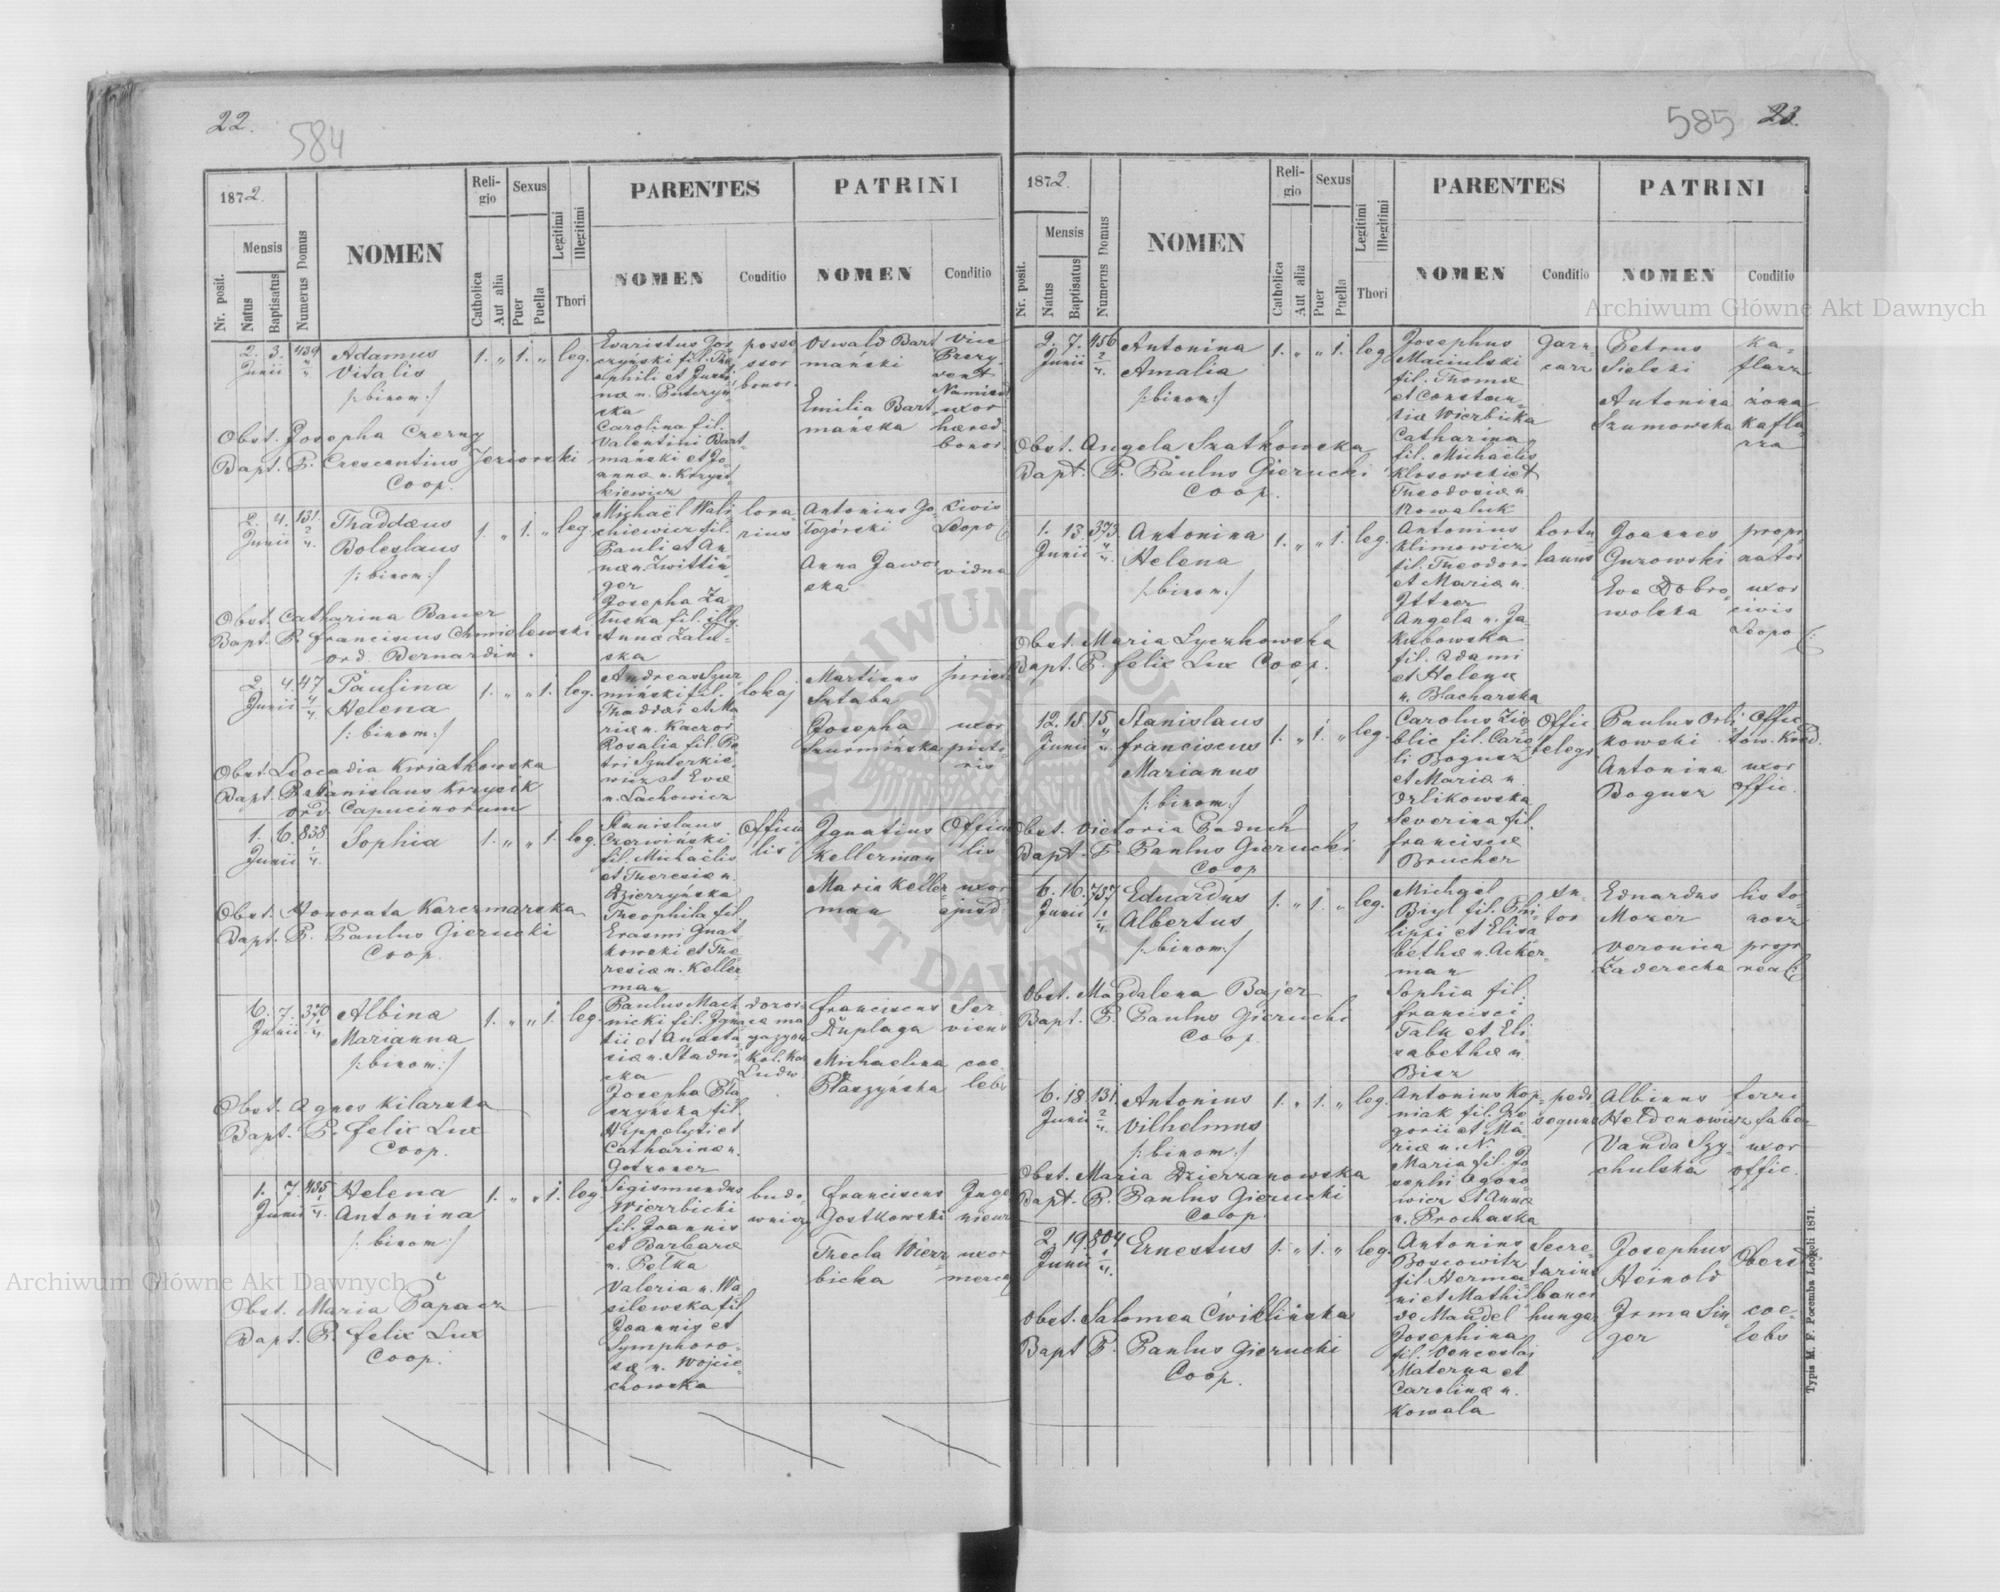 22.
584
1872.
Nr. posit.
Mensis
Natus
Baptisatus
Numerus Domus
NOMEN
Reli-
gio
Catholica
Aut alia
Sexus
Puer
Puella
Legitimi
Illegitimi
Thori
PARENTES
NOMEN
Conditio
PATRINI
NOMEN
Conditio
2. 3. 439
Junii
Adamus
Vitalis
/:binom:/
1. „ 1. „ leg.
Evaristus Gos
czyński fil. Theo
phili et Justi
næ n. Puterzyń
ska
Carolina fil.
Valentini Bart
mański et Jo
annæ n. Krzyszt
kiewicz
posse
ssor
bonor.
Oswald Bart
mański
Emilia Bart
mańska
Vice
uxor
hæred
bonor.
Obst. Josepha Czerny
Bapt. P. Crescentius Jeziorski
Coop.
2. 4. 131
Junii
Thaddæus
Boleslaus
/:binom:/
1. „ 1. „ leg.
Michaël Wali
chiewicz fil.
Pauli et An
næ n. Zwittin
ger
Josepha Za
łuska fil. illg.
Annæ Zału-
ska
lora-
rius
Antonius Go
łogórski
Anna Jawor
ska
Civis
Leopo
vidua
Obst. Catharina Bauer
Bapt. P. Franciscus Chmielewski
ord. Bernardin.
2. 4. 47
Junii
Paulina
Helena
/:binom:/
1. „ „ 1. leg.
Andreas Szur
miński fil.
Thaddæi et Ma
riæ n. Kaczor
Rosalia fil. Pe
tri Szuterkie-
wicz et Evæ
n. Lachowicz
lokaj
Martinus
Sztaba
Josepha
Szurmińska
uxor
Obst. Leocadia Kwiatkowska
Bapt. P. Stanislaus Krzysik
ord. Capucinorum
1. 6. 838
Junii
Sophia
1. „ „ 1. leg.
Stanislaus
Czerwiński
fil. Michaelis
et Theresiæ n.
Dzierzyńska
Theophila fil.
Erasmi Gnat
kowski et The
resiæ n. Keller
man
Officia
lis
Ignatius
Kellerman
Maria Keller
man
Officia
lis
uxor
ejusd
Obst. Honorata Karczmarska
Bapt. P. Paulus Gierucki
Coop.
6. 7. 370
Junii
Albina
Marianna
/:binom:/
1. „ „ 1. leg.
Paulus Mact
nicki fil. Igna
tii et Anasta
siæ n. Stadni
cka
Josepha Bła
szyńska fil.
Hippolyti et
Catharinæ n.
dozor-
ca ma
gazynu
kol. Kar
Ludw.
Franciscus
Duplaga
Michaelina
Błaszyńska
Ser-
viens
coe-
lebs
Obst. Agnes Kilarska
Bapt. P. Felix Lux
Coop.
1. 7. 435
Junii
Helena
Antonina
/:binom:/
1. „ „ 1. leg.
Sigismundus
Wierzbicki
fil. Joannis
et Barbaræ
n. Pełka
Valeria n. Wa
silewska fil
Joannis et
Symphoro-
sæ n. Wojcie
chowska
budo
wniczy
Franciscus
Gostkowski
Thecla Wierz
bicka
Inge
nieur
uxor
merca
Obst. Maria Paparz
Bapt. P. Felix Lux
Coop.
585
23.
1872.
Nr. posit.
Mensis
Natus
Baptisatus
Numerus Domus
NOMEN
Reli-
gio
Catholica
Aut alia
Sexus
Puer
Puella
Legitimi
Illegitimi
Thori
PARENTES
NOMEN
Conditio
PATRINI
NOMEN
Conditio
2. 7. 456
Junii
Antonina
Amalia
/:binom:/
1. „ „ 1. leg
Josephus
Maciulski
fil. Thomæ
et Constan-
tiæ Wierbicka
Catharina
fil. Michaelis
Klosowski et
Theodosiæ n.
Kowaluk
garn-
carz
Petrus
Sielski
Antonina
Szumowska
ka-
flarz
żona
kafla-
rza
Obst. Angela Szatkowska
Bapt. P. Paulus Gierucki
Coop.
1. 13. 373
Junii
Antonina
Helena
/:binom:/
1. „ „ 1. leg.
Antonius
Klimowicz
fil. Theodori
et Mariæ n.
Ittner
Angela n. Ja
kubowska
fil. Adami
et Helenæ
n. Blacharska
hortu
lanus
Joannes
Gurowski
Eva Dobro-
wolska
propi
nator
uxor
civis
Leopo
Obst. Maria Łyczkowska
Bapt. P. Felix Lux Coop.
12. 15. 15
Junii
Stanislaus
Franciscus
Marianus
/:binom:/
1. „ 1. „ leg.
Carolus Zie
blic fil. Caro
li Bogusz
et Mariæ n.
Orlikowska
Severina fil.
Franciscæ
Brucher
Offic
telegr
Paulus Orli
kowski
Antonina
Bogusz
Offic
tow. Kred.
uxor
offic.
Obst. Victoria Baduch
Bapt. P. Paulus Gierucki
Coop
6. 16. 757
Junii
Eduardus
Albertus
/:binom:/
1. „ 1. „ leg.
Michaël
Biyl fil. Phi-
lippi et Elisa
bethæ n. Acker-
man
Sophia fil.
Francisci
Falk et Eli-
sabethæ n.
Bisz
Su-
tor
Eduardus
Mozer
Veronica
Zaderecka
listo-
nosz
propr
real
Obst. Magdalena Bajer
Bapt. P. Paulus Gierucki
Coop
6. 18. 131.
Junii
Antonius
Vilhelmus
/:binom:/
1. „ 1. „ leg.
Antonius Kop-
niak fil. Gre
gorii et Ma-
riæ n. N.
Maria fil. Jo
sephi Agopso
wicz et Annæ
n. Prochaska
pedi-
sequus
Albinus
Heldenowicz
Vanda Szy-
chulska
ferri
faber
uxor
offic.
Obst. Maria Dzierzanowska
Bapt. P. Paulus Gierucki
Coop
2. 19. 504
Junii
Ernestus
1. „ 1. „ leg.
Antonius
Boscowitz
fil. Herma-
ni et Mathil
de Mandel
Josephina
fil. Venceslai
Materna et
Carolinæ n.
Kowala
Secre-
tarius
banci
hungar
Josephus
Heinold
Irma Sin-
ger
Oberst
coe-
lebs
Obst. Salomea Ćwiklińska
Bapt P. Paulus Gierucki
Coop.
Typis M. F. Poremba Leopoli 1871.
Archiwum Główne Akt Dawnych
Archiwum Główne Akt Dawnych
ARCHIWUM GŁÓWNE AKT DAWNYCH